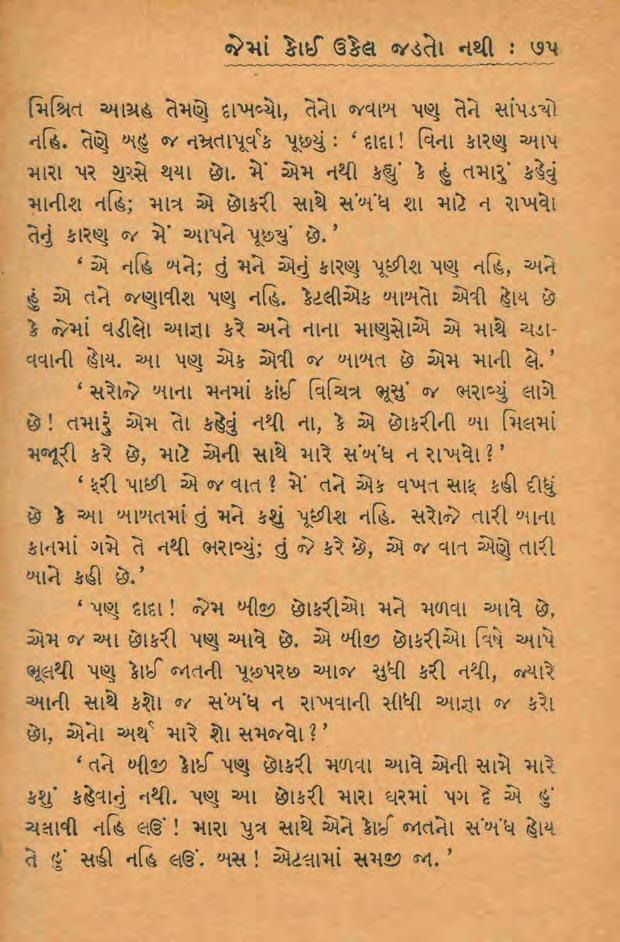 જેમાં કોઈ ઉકેલ જડતો નથી : ૭૫
મિશ્રિત આગ્રહ તેમણે દાખવ્યો, તેનો જવાબ પણ તેને સાંપડ્યો
નહિ. તેણે બહુ જ નમ્રતાપૂર્વક પૂછ્યું : ‘ દાદા! વિના કારણ આપ
મારા પર ગુસ્સે થયા છો. મેં એમ નથી કહ્યું કે હું તમારું કહેવું
માનીશ નહિ; માત્ર એ છોકરી સાથે સંબંધ શા માટે ન રાખવો
તેનું કારણ જ મેં આપને પૂછ્યું છે.’
‘ એ નહિ બને; તું મને એનું કારણ પૂછીશ પણ નહિ, અને
હું એ તને જણાવીશ પણ નહિ. કેટલીએક બાબતો એવી હોય છે
કે જેમાં વડીલો આજ્ઞા કરે અને નાના માણસોએ એ માથે ચડા-
વવાની હોય. આ પણ એક એવી જ બાબત છે એમ માની લે.’
‘ સરોજે બાના મનમાં કાંઈ વિચિત્ર ભૂસું જ ભરાવ્યું લાગે
છે! તમારું એમ તો કહેવું નથી ના, કે એ છોકરીની બા મિલમાં
મજૂરી કરે છે, માટે એની સાથે મારે સંબંધ ન રાખવો?’
‘ ફરી પાછી એ જ વાત? મેં તને એક વખત સાફ કહી દીધું
છે કે આ બાબતમાં તું મને કશું પૂછીશ નહિ. સરોજે તારી બાના
કાનમાં ગમે તે નથી ભરાવ્યું; તું જે કરે છે, એ જ વાત એણે તારી
બાને કહી છે.’
‘ પણ દાદા! જેમ બીજી છોકરીઓ મને મળવા આવે છે,
એમ જ આ છોકરી પણ આવે છે. એ બીજી છોકરીઓ વિષે આપે
ભૂલથી પણ કોઈ જાતની પૂછપરછ આજ સુધી કરી નથી, જ્યારે
આની સાથે કશો જ સંબંધ ન રાખવાની સીધી આજ્ઞા જ કરો
છો, એનો અર્થ મારે શો સમજવો?’
‘ તને બીજી કોઈ પણ છોકરી મળવા આવે એની સામે મારે
કશું કહેવાનું નથી. પણ આ છોકરી મારા ઘરમાં પગ દે એ હું
ચલાવી નહિ લઉં! મારા પુત્ર સાથે એને કોઈ જાતનો સંબંધ હોય
તે હું સહી નહિ લઉં. બસ! એટલામાં સમજી જા.’